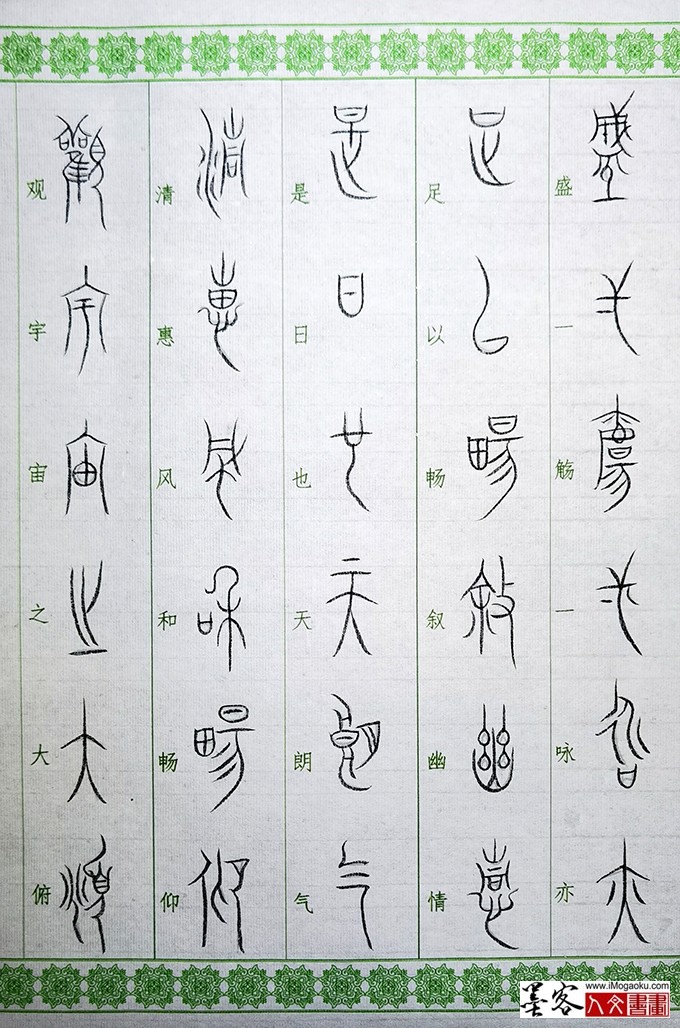 盛一觞一咏亦
足以畅叙幽情
是日也天朗气
清惠风和畅仰
观宇宙之大俯
墨客
www.iMogaoku.com
人文书画